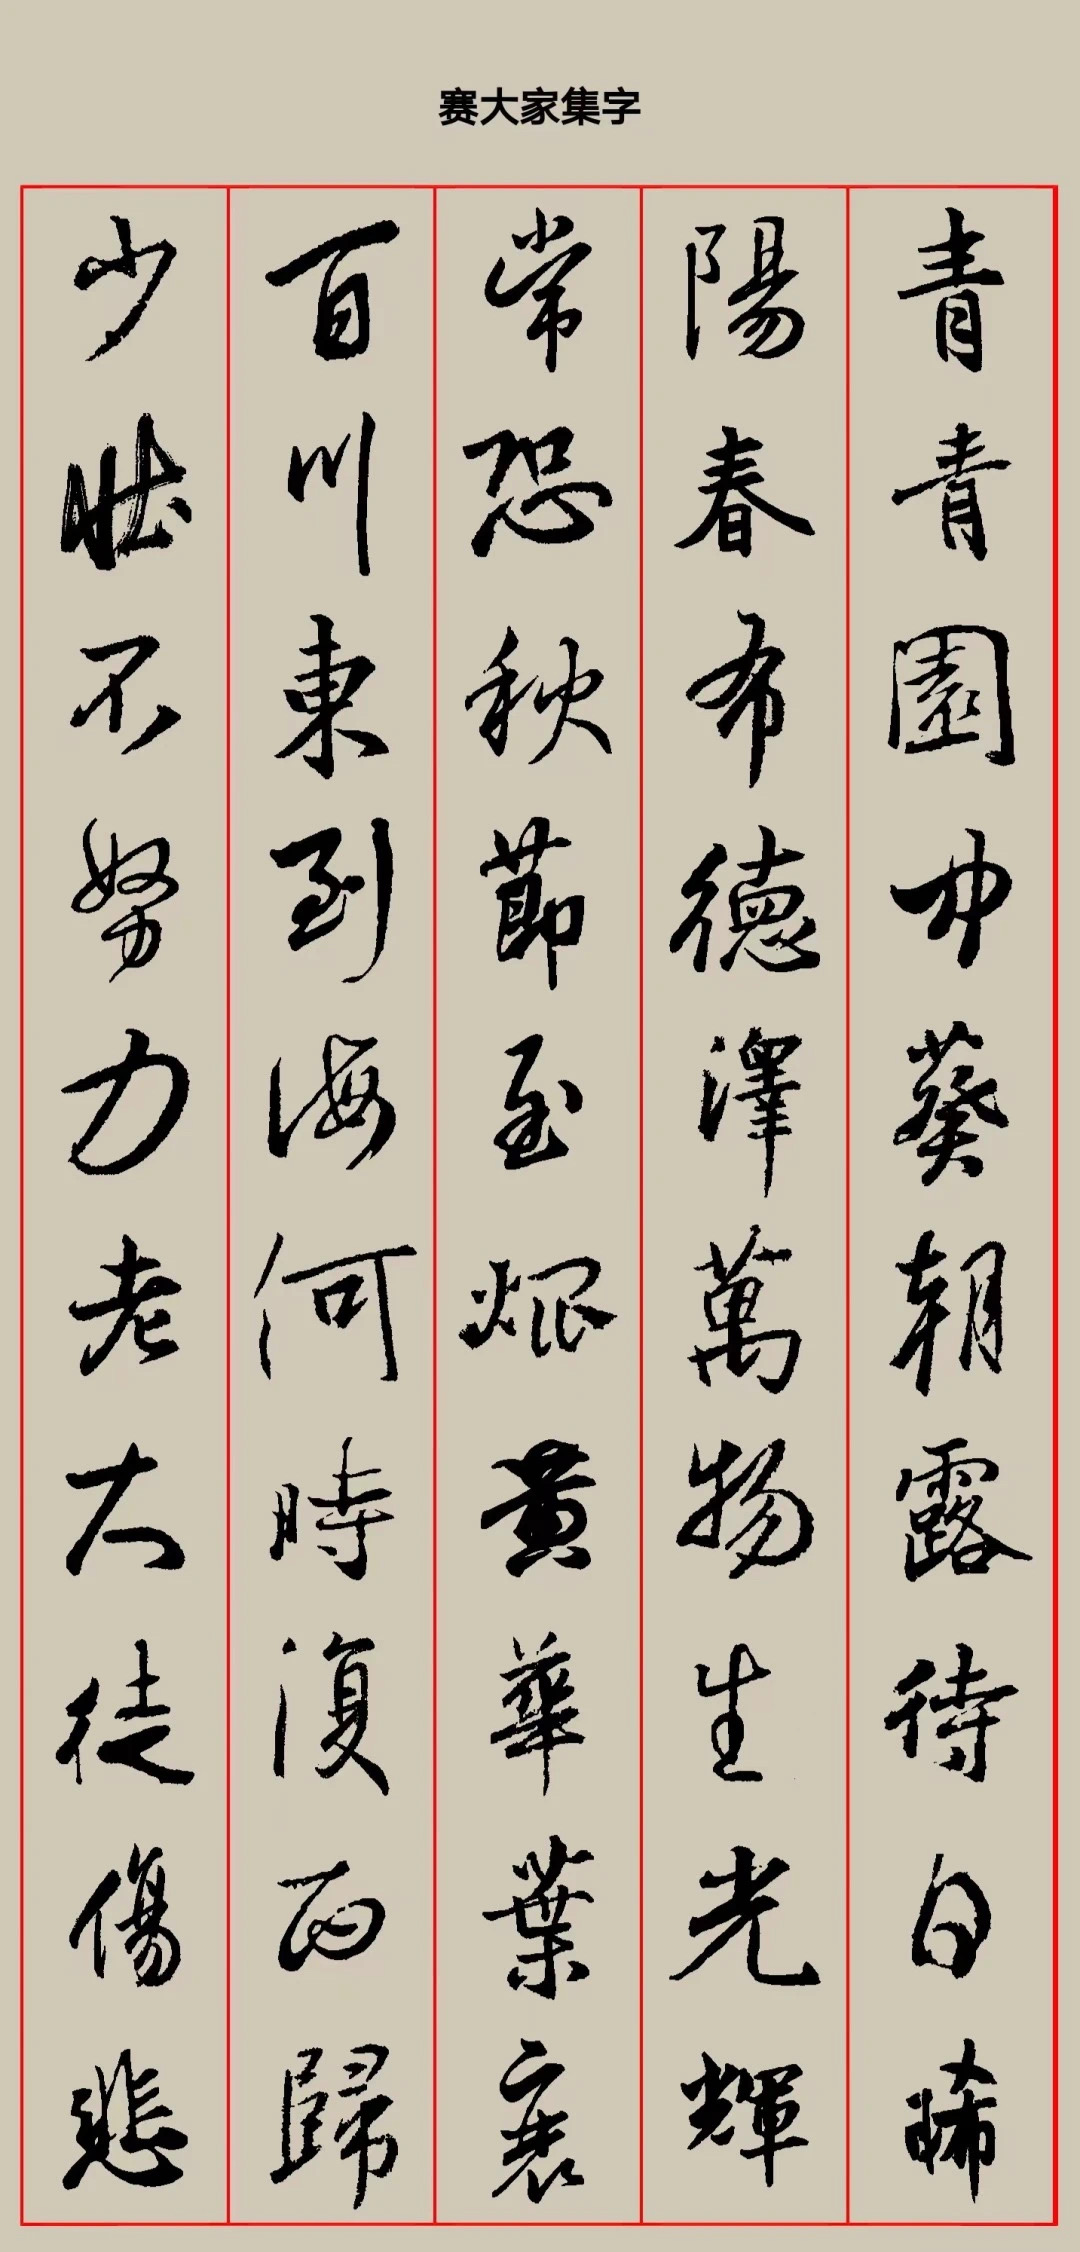 赛大家集字
青青園中葵朝露待日晞
陽春布德澤萬物生光輝
常恐秋節至焜黃華葉衰
百川東到海何時復西歸
少壯不努力老大徒傷悲